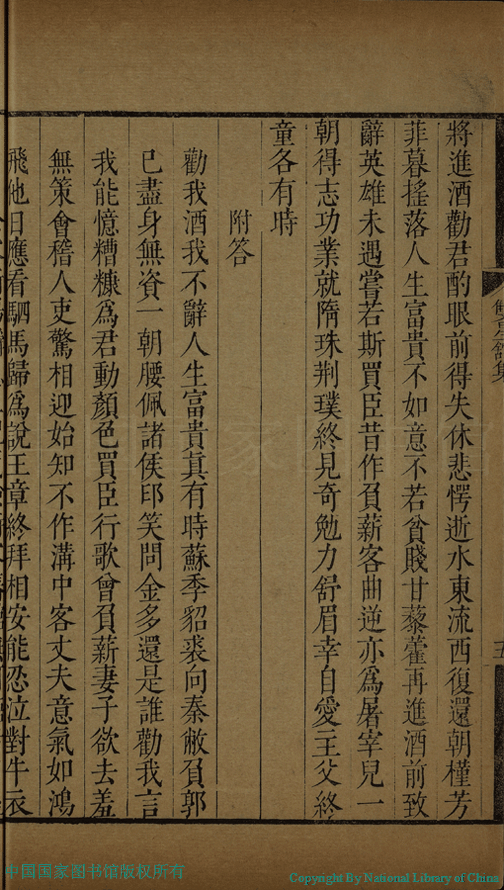 將進酒勸君酌眼前得失休悲愕逝水東流西復還朝槿芳
菲暮搖落人生富貴不如意不若貧賤甘藜藿再進酒前致
辭英雄未遇嘗若斯買臣昔作負薪客曲逆亦爲屠宰兒一
朝得志功業就隋珠荆璞終見奇勉力舒眉幸自愛主父終
童各有時
附答
勸我酒我不辭人生富貴真有時蘇季貂裘向秦敝負郭
已盡身無資一朝腰佩諸侯印笑問金多還是誰勸我言
我能憶糟糠爲君動顏色買臣行歌曾負薪妻子欲去羞
無策會稽人吏驚相迎始知不作溝中客丈夫意氣如鴻
飛他日應看駟馬歸爲說王章終拜相安能忍泣對牛衣
五
中国国家图书馆版权所有
Copyright By National Library of China